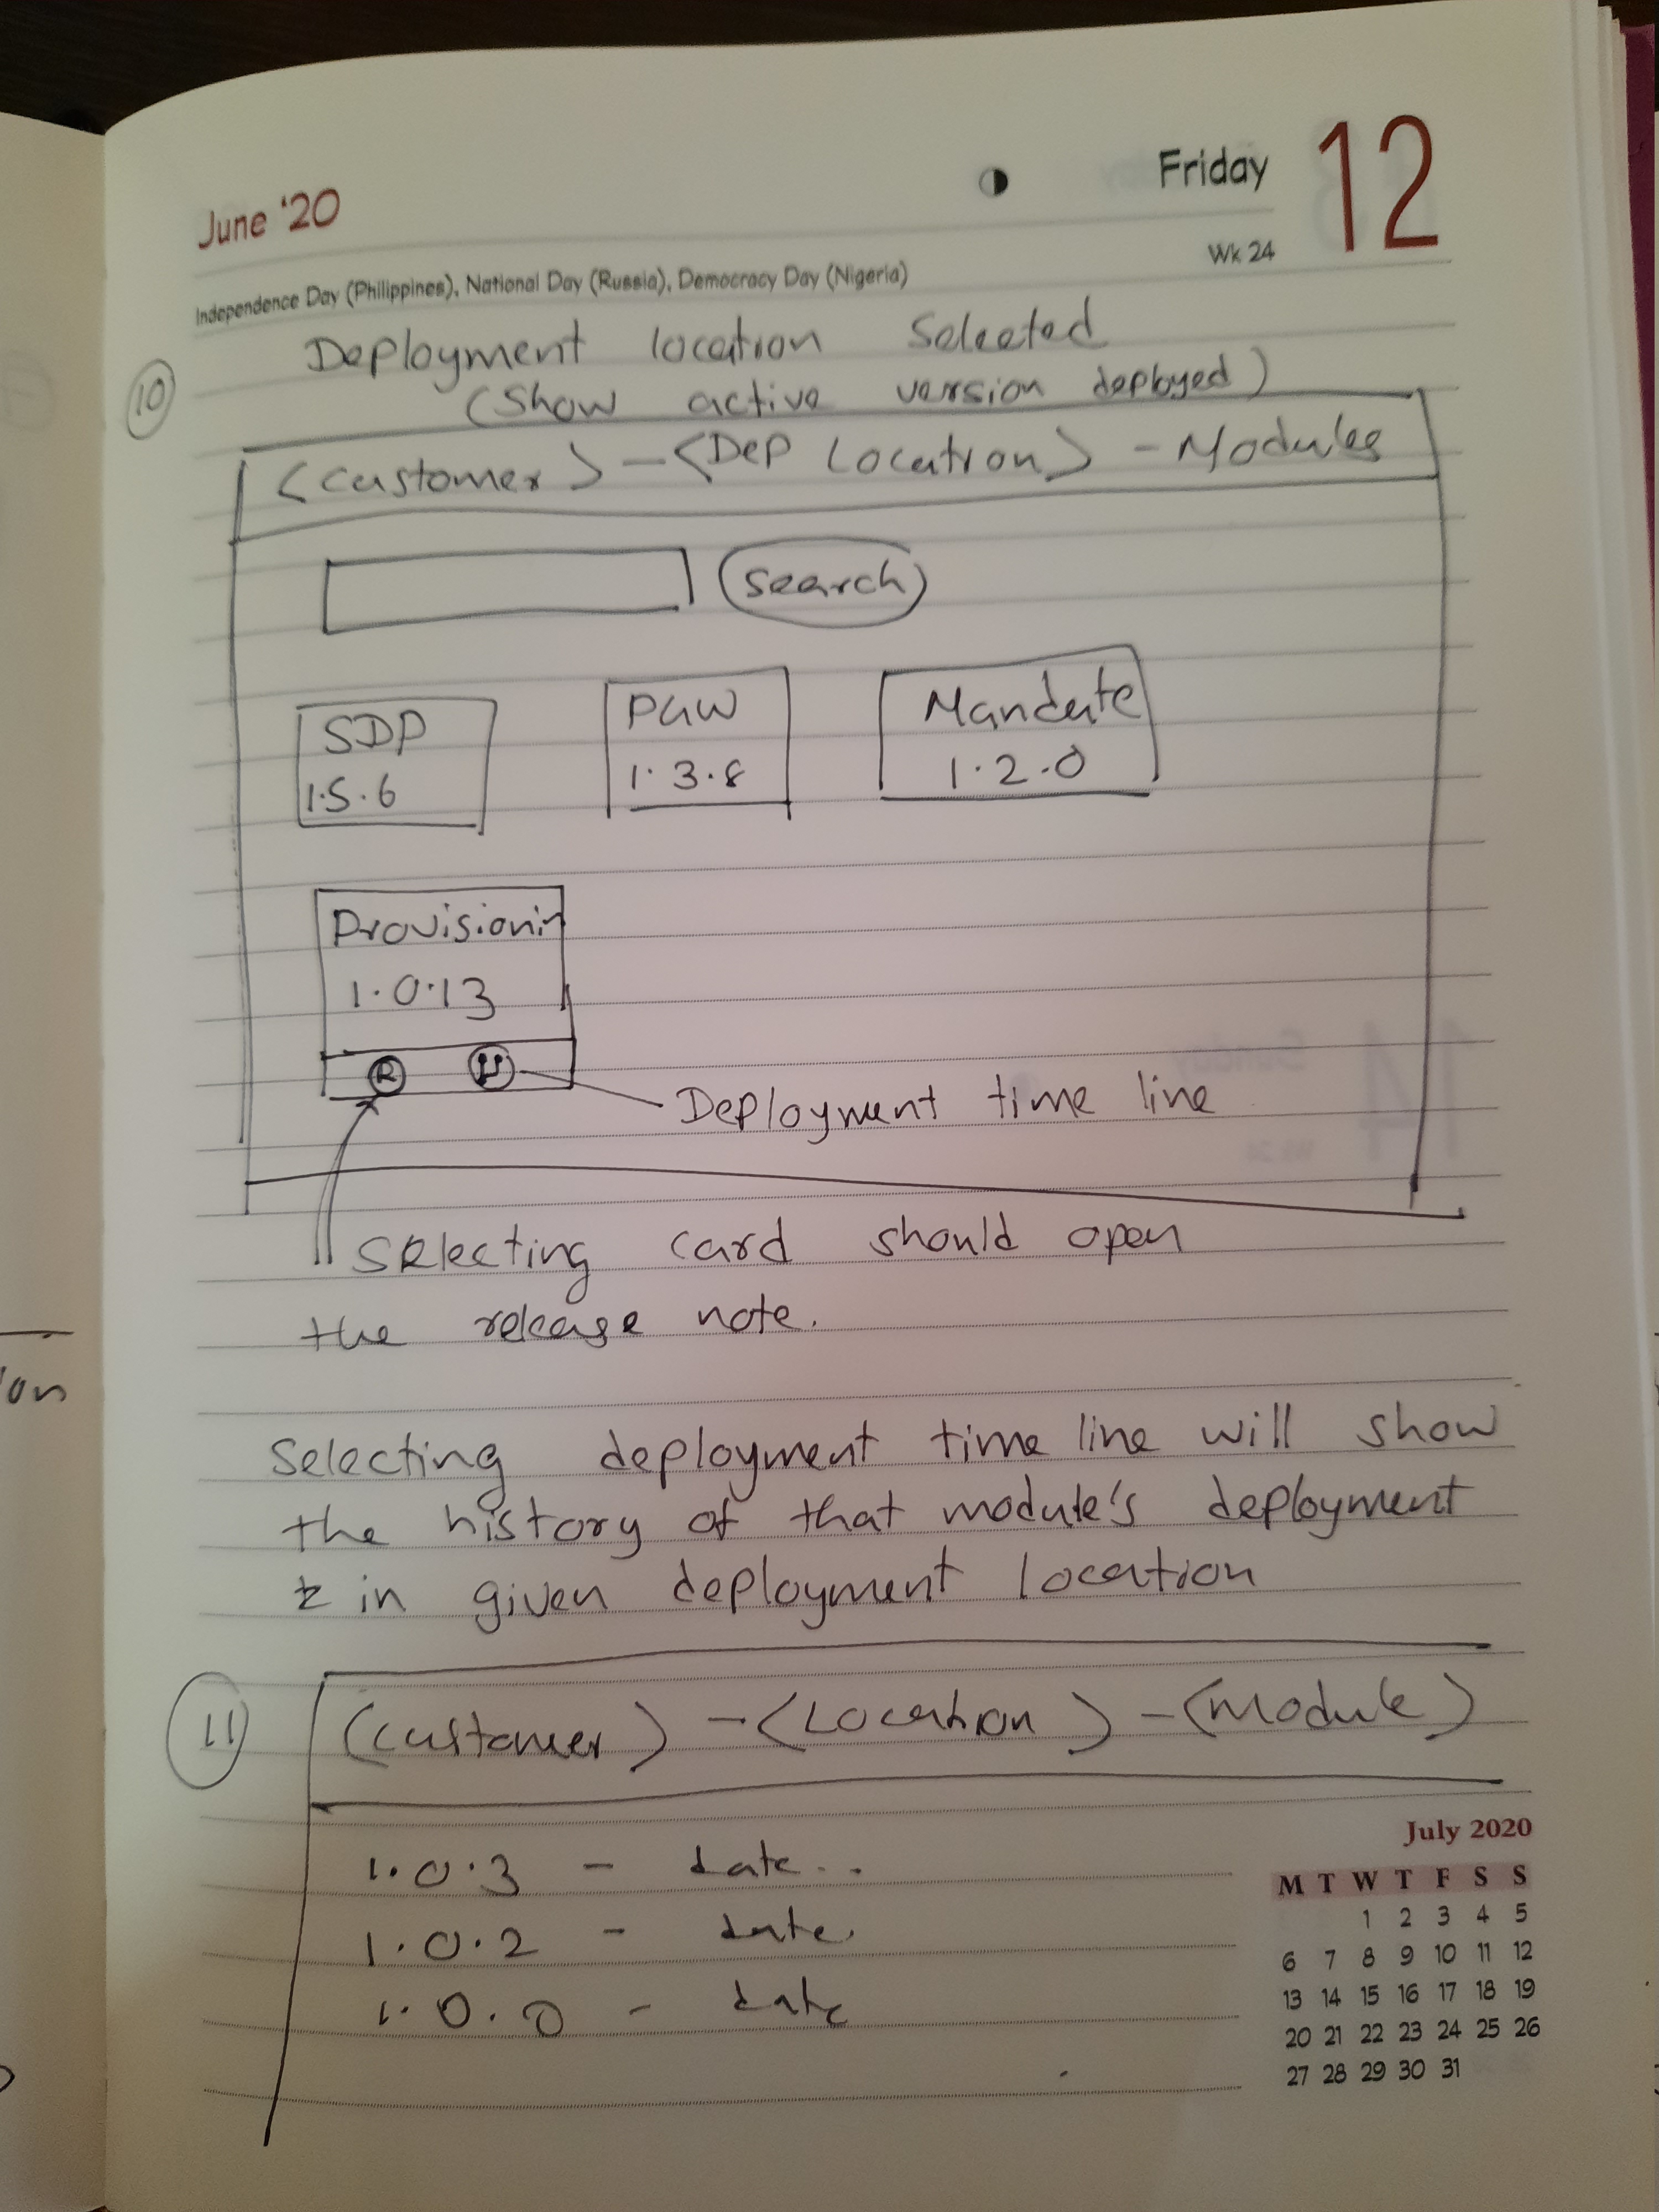 June '20
Friday 12
Wk 24
Independence Day (Philippines), National Day (Russia), Democracy Day (Nigeria)
10
Deployment location Selected
(Show active version deployed)
<Customer> - <Dep Location> - Modules
Search
SDP PGW Mandate
1.5.6 1.3.8 1.2.0
Provisionin
1.0.13
R
Deployment time line
Selecting card should open
the release note.
Selecting deployment time line will show
the history of that module's deployment
in given deployment location
11
<Customer> - <Location> - <Module>
1.0.3 - date..
1.0.2 - date.
1.0.0 - date
July 2020
M T W T F S S
1 2 3 4 5
6 7 8 9 10 11 12
13 14 15 16 17 18 19
20 21 22 23 24 25 26
27 28 29 30 31
on